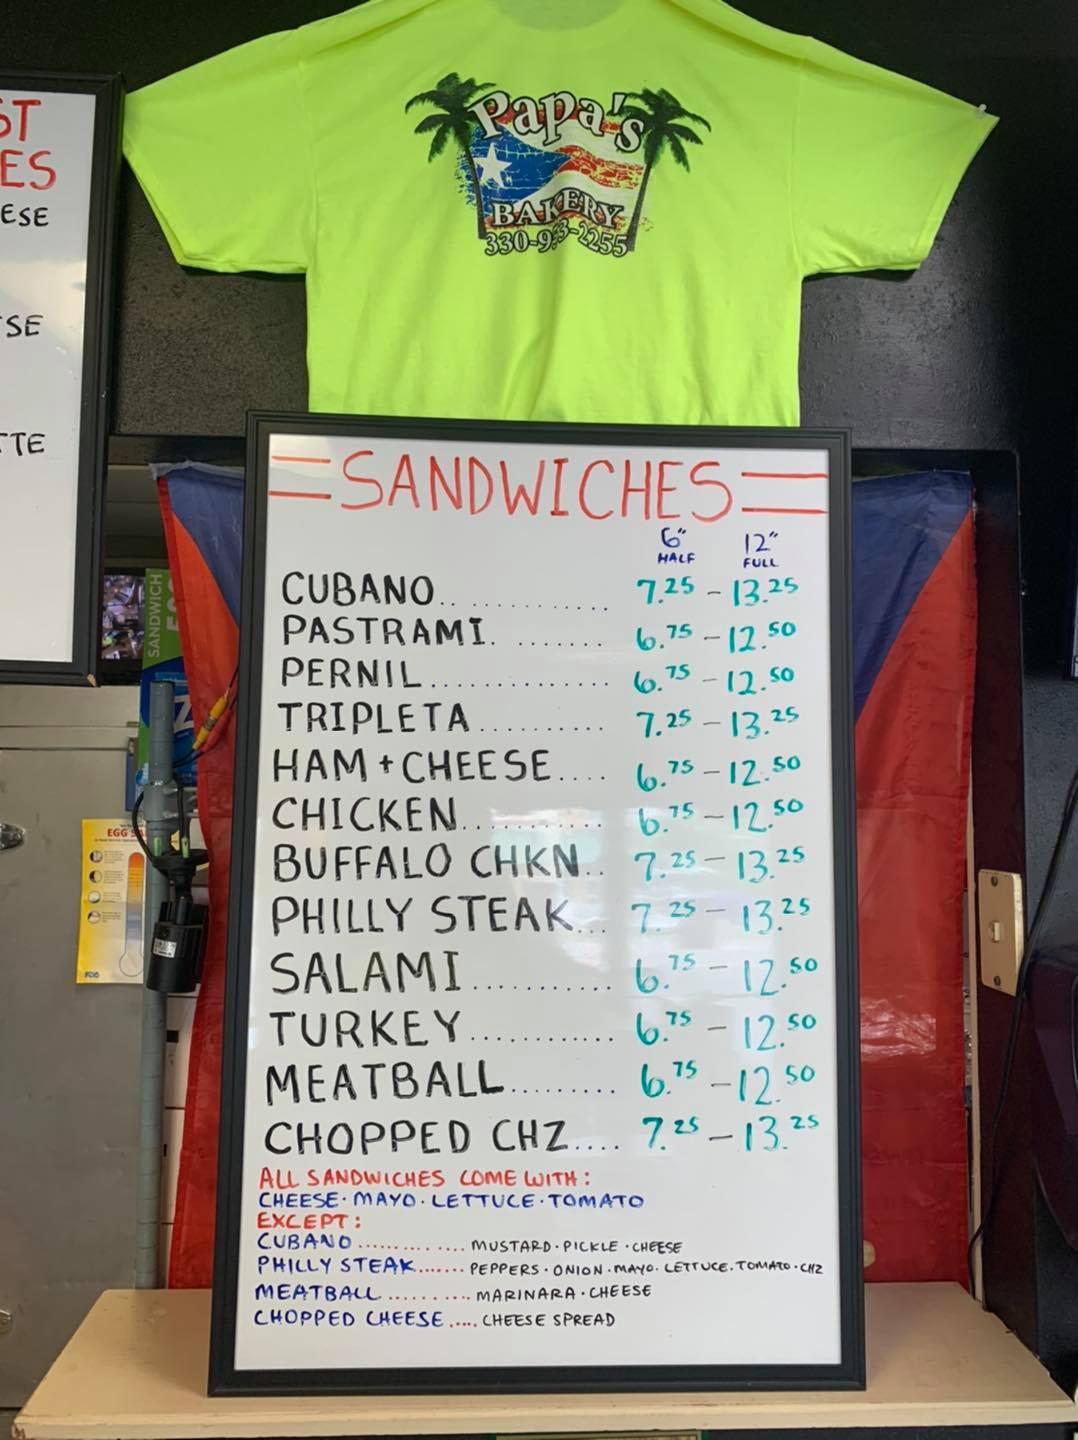 Papa's
BAKERY
ST
ES
ESE
SE
TTE
SANDWICH
EGG
SANDWICHES
6" 12"
HALF FULL
CUBANO.. ........... 7.25 - 13.25
PASTRAMI. ....... 6.75 - 12.50
PERNIL.............. 6.75 - 12.50
TRIPLETA.......... 7.25 - 13.25
HAM + CHEESE.... 6.75 - 12.50
CHICKEN............ 6.75 - 12.50
BUFFALO CHKN.. 7.25 - 13.25
PHILLY STEAK... 7.25 - 13.25
SALAMI........... 6.75 - 12.50
TURKEY............ 6.75 - 12.50
MEATBALL......... 6.75 - 12.50
CHOPPED CHZ.... 7.25 - 13.25
ALL SANDWICHES COME WITH:
CHEESE · MAYO · LETTUCE · TOMATO
EXCEPT:
CUBANO ............. MUSTARD · PICKLE · CHEESE
PHILLY STEAK....... PEPPERS · ONION · MAYO · LETTUCE · TOMATO · CHZ
MEATBALL .......... MARINARA · CHEESE
CHOPPED CHEESE ..... CHEESE SPREAD